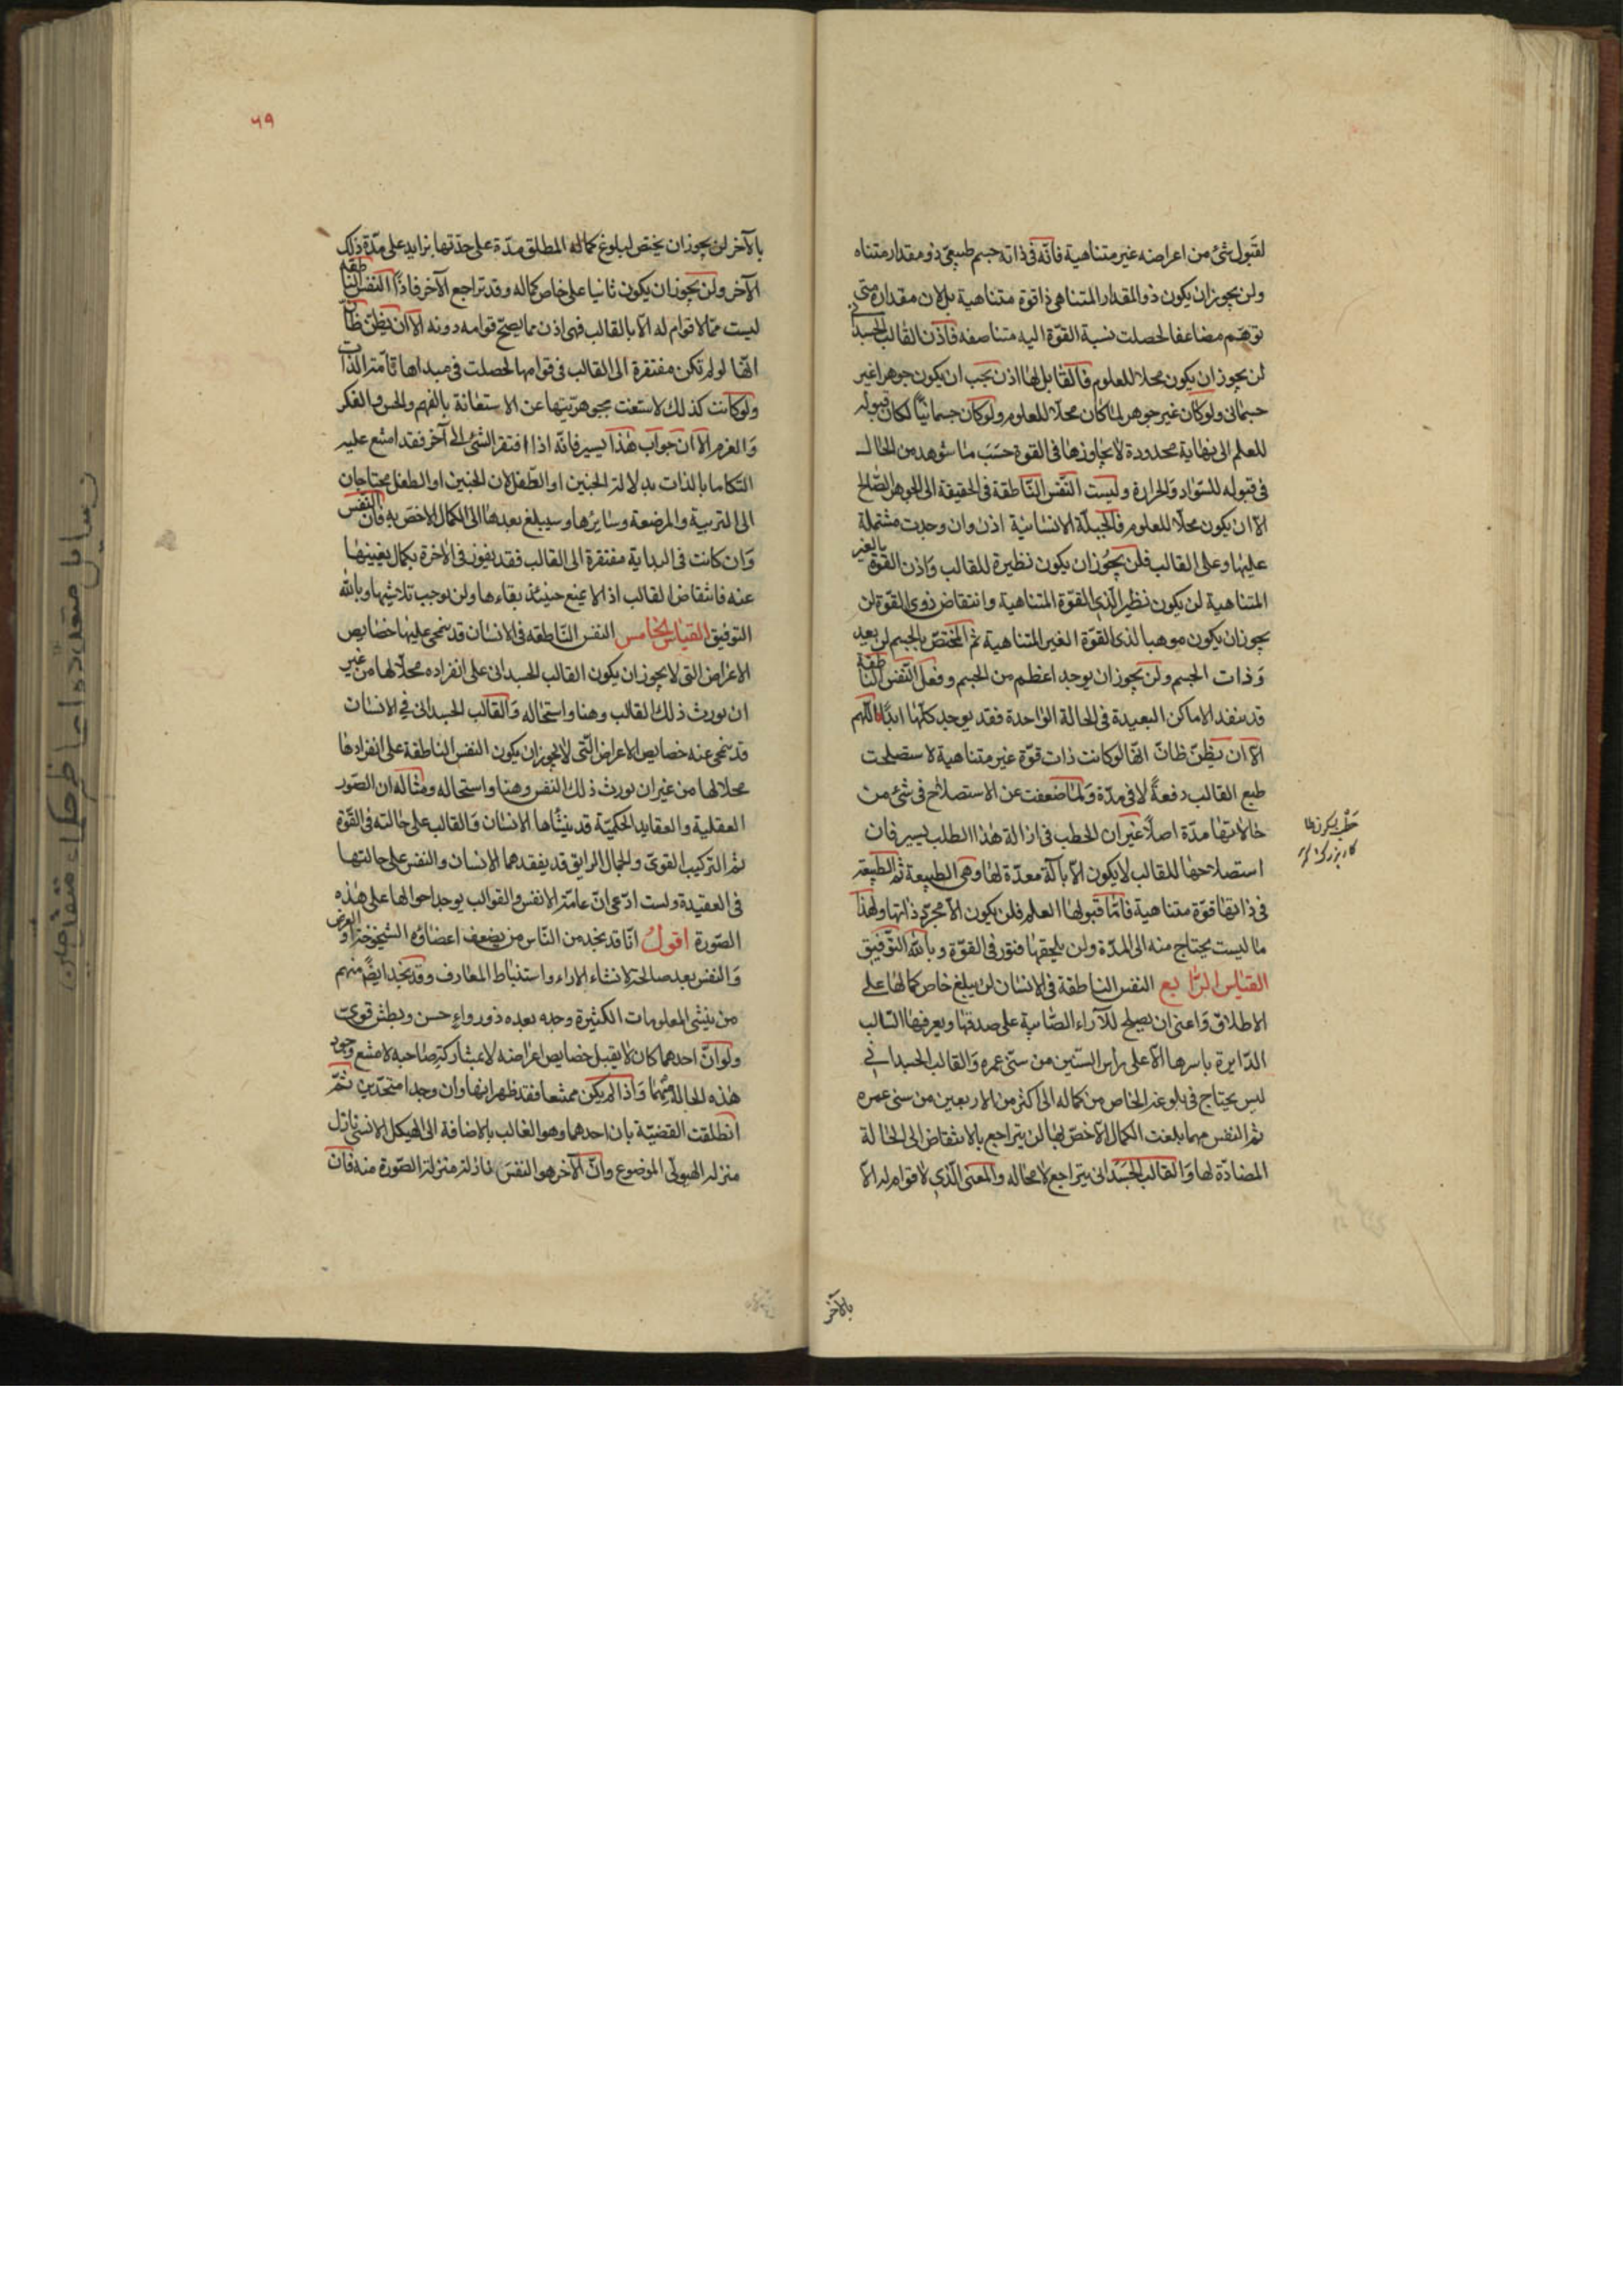 لقبول شئ من اعراضه غير متناهية فانّه فى ذاته جسم طبيعىّ ذو مقدار متناه
ولن يجوز ان يكون ذو المقدار المتناهى ذا قوة متناهية بل لان مقداره متى
توهّم مضاعفا لحصلت نسبة القوّة اليه متناصفه فاذن القالب الجسدانى
لن يجوز ان يكون محلا للعلوم فالقابل لها اذن يجب ان يكون جوهرا غير
جسمانى ولو كان غير جوهر لما كان محلّا للعلوم ولو كان جسمانيّا لكان قبوله
للعلم الى نهاية محدودة لا يجاوزها فى القوة حسب ما شوهد من الحال
فى قبوله للسّواد والحرارة وليست النّفس النّاطقة فى الحقيقة الى الجوهر الصّالح
الا ان يكون محلّا للعلوم فالجبلّة الانسانيّة اذن وان وجدت مشتملة
عليها وعلى القالب فلن يجوز ان يكون نظيرة للقالب واذن القوة بالغير
المتناهية لن يكون نظير الّذى القوّة المتناهية وانتقاض ذوى القوة لن
يجوز ان يكون موهبا لذى القوّة الغير المتناهية ثم المختصّ بالجسم لن يعد
وذات الجسم ولن يجوز ان يوجد اعظم من الجسم وفعل النّفس الناطقة
قد ينفد الاماكن البعيدة فى الحالة الواحدة فقد يوجد كلّها ابدا اللّهم
الّا ان يظنّ ظانّ انّها لو كانت ذات قوّة غير متناهية لاستصلحت
طبع القالب دفعةً لا فى مدّة ولما ضعفت عن الاستصلاح فى شئ من
حالاتها مدّة اصلًا غير ان الخطب فى ازالة هذا الطلب يسير فان
استصلاحها للقالب لا يكون الّا بآلة معدّة لها وهى الطبيعة ثم الطبيعة
فى ذاتها قوّة متناهية فامّا قبولها العلم فلن يكون الّا مجرّد ذاتها ولهذا
ما ليست يحتاج منه الى المدّة ولن يلحقها فتور فى القوّة وبالله التّوفيق
القياس الرّابع النفس الناطقة فى الانسان لن يبلغ خاص كمالها على
الاطلاق واعنى ان يصلح للآراء الصّايبة على صدقها ويعرفها السّالب
الدّايرة باسرها الّا على رأس السّتين من سنى عمره والقالب الجسدانى
ليس يحتاج فى بلوغه الخاص من كماله الى اكثر من الاربعين من سنى عمره
ثم النفس مهما بلغت الكمال الاخصّ لها لن يتراجع بالانتقاض الى الحالة
المضادّة لها والقالب الجسدانى يتراجع لا محاله والمعنى الّذى لا قوام له الّا
بالآخر
بالآخر لن يجوز ان يختصّ لبلوغ كماله المطلق مدّة على حدّتها يزايد على مدّة ذلك
الآخر ولن يجوز ان يكون ثانيا على خاص كماله وقد تراجع الآخر فاذًا النفس الناطقة
ليست ممّا لا قوام له الّا بالقالب فهى اذن مما يصحّ قوامه دونه الّا ان يظنّ ظانّ
انّها لو لم تكن مفتقرة الى القالب فى قوامها لحصلت فى مبداها تامّة الذات
ولو كانت كذلك لاستغنت بجوهريّتها عن الاستعانة بالفهم والحس والفكر
والعزم الّا ان جواب هذا يسير فانّه اذا افتقر الشئ الى آخر فقد امتنع عليه
التكامل بالذات بدلالة الجنين او الطّفل لان الجنين او الطفل محتاجان
الى التربية والمرضعة وسايرها وسيبلغ بعدها الى الكمال الاخصّ به فان النفس
وان كانت فى البداية مفتقرة الى القالب فقد يفوز فى الآخرة بكمال يغنيها
عنه فانتقاض القالب اذ لا يمنع حينئذ بقاءها ولن يوجب تلاشيها وبالله
التوفيق القياس الخامس النفس النّاطقه فى الانسان قد ينحى عليها خصايص
الاعراض التى لا يجوز ان يكون القالب الجسدانى على انفراده محلّا لها من غير
ان يورث ذلك القالب وهنا واستحاله والقالب الجسدانى فى الانسان
قد ينحى عنه خصايص الاعراض الّتى لا يجوز ان يكون النفس الناطقة على انفرادها
محلا لها من غير ان يورث ذلك النفس وهنا واستحاله ومثاله ان الصّور
العقلية والعقايد الحكميّة قد ينشاها الانسان والقالب على حالته فى القّوة
ثم التركيب القوىّ والجمال الرايق قد يفقدهما الانسان والنفس على حالتها
فى العقيدة ولست ادّعى انّ عامّة الانفس والقوالب يوجد احوالها على هذه
الصّورة اقول انّا قد نجد من النّاس من يضعف اعضاؤه الشيخوخة او المرض
والنفس بعد صالحة لانشاء الاراء واستنباط المعارف وقد نجد ايضًا منهم
من ينشى المعلومات الكثيرة وجه بعده ذو رواء حسن وبطش قوىّ
ولو انّ احدهما كان لا يقبل خصايص اعراضه لا بمشاركة صاحبه لامتنع وجود
هذه الحالة منهما واذا لم يكن ممتنعا فقد ظهر انها وان وجدا متحدّين ثمّ
انطلقت القضيّة بان احدهما وهو الغالب بالاضافة الى الهيكل الانسى نازل
منزله الهيولى الموضوع وانّ الآخر هو النفس نازلة منزلة الصّورة منه فان
٦٩
رسايل متعدده اعاظم حكماء متقدمين